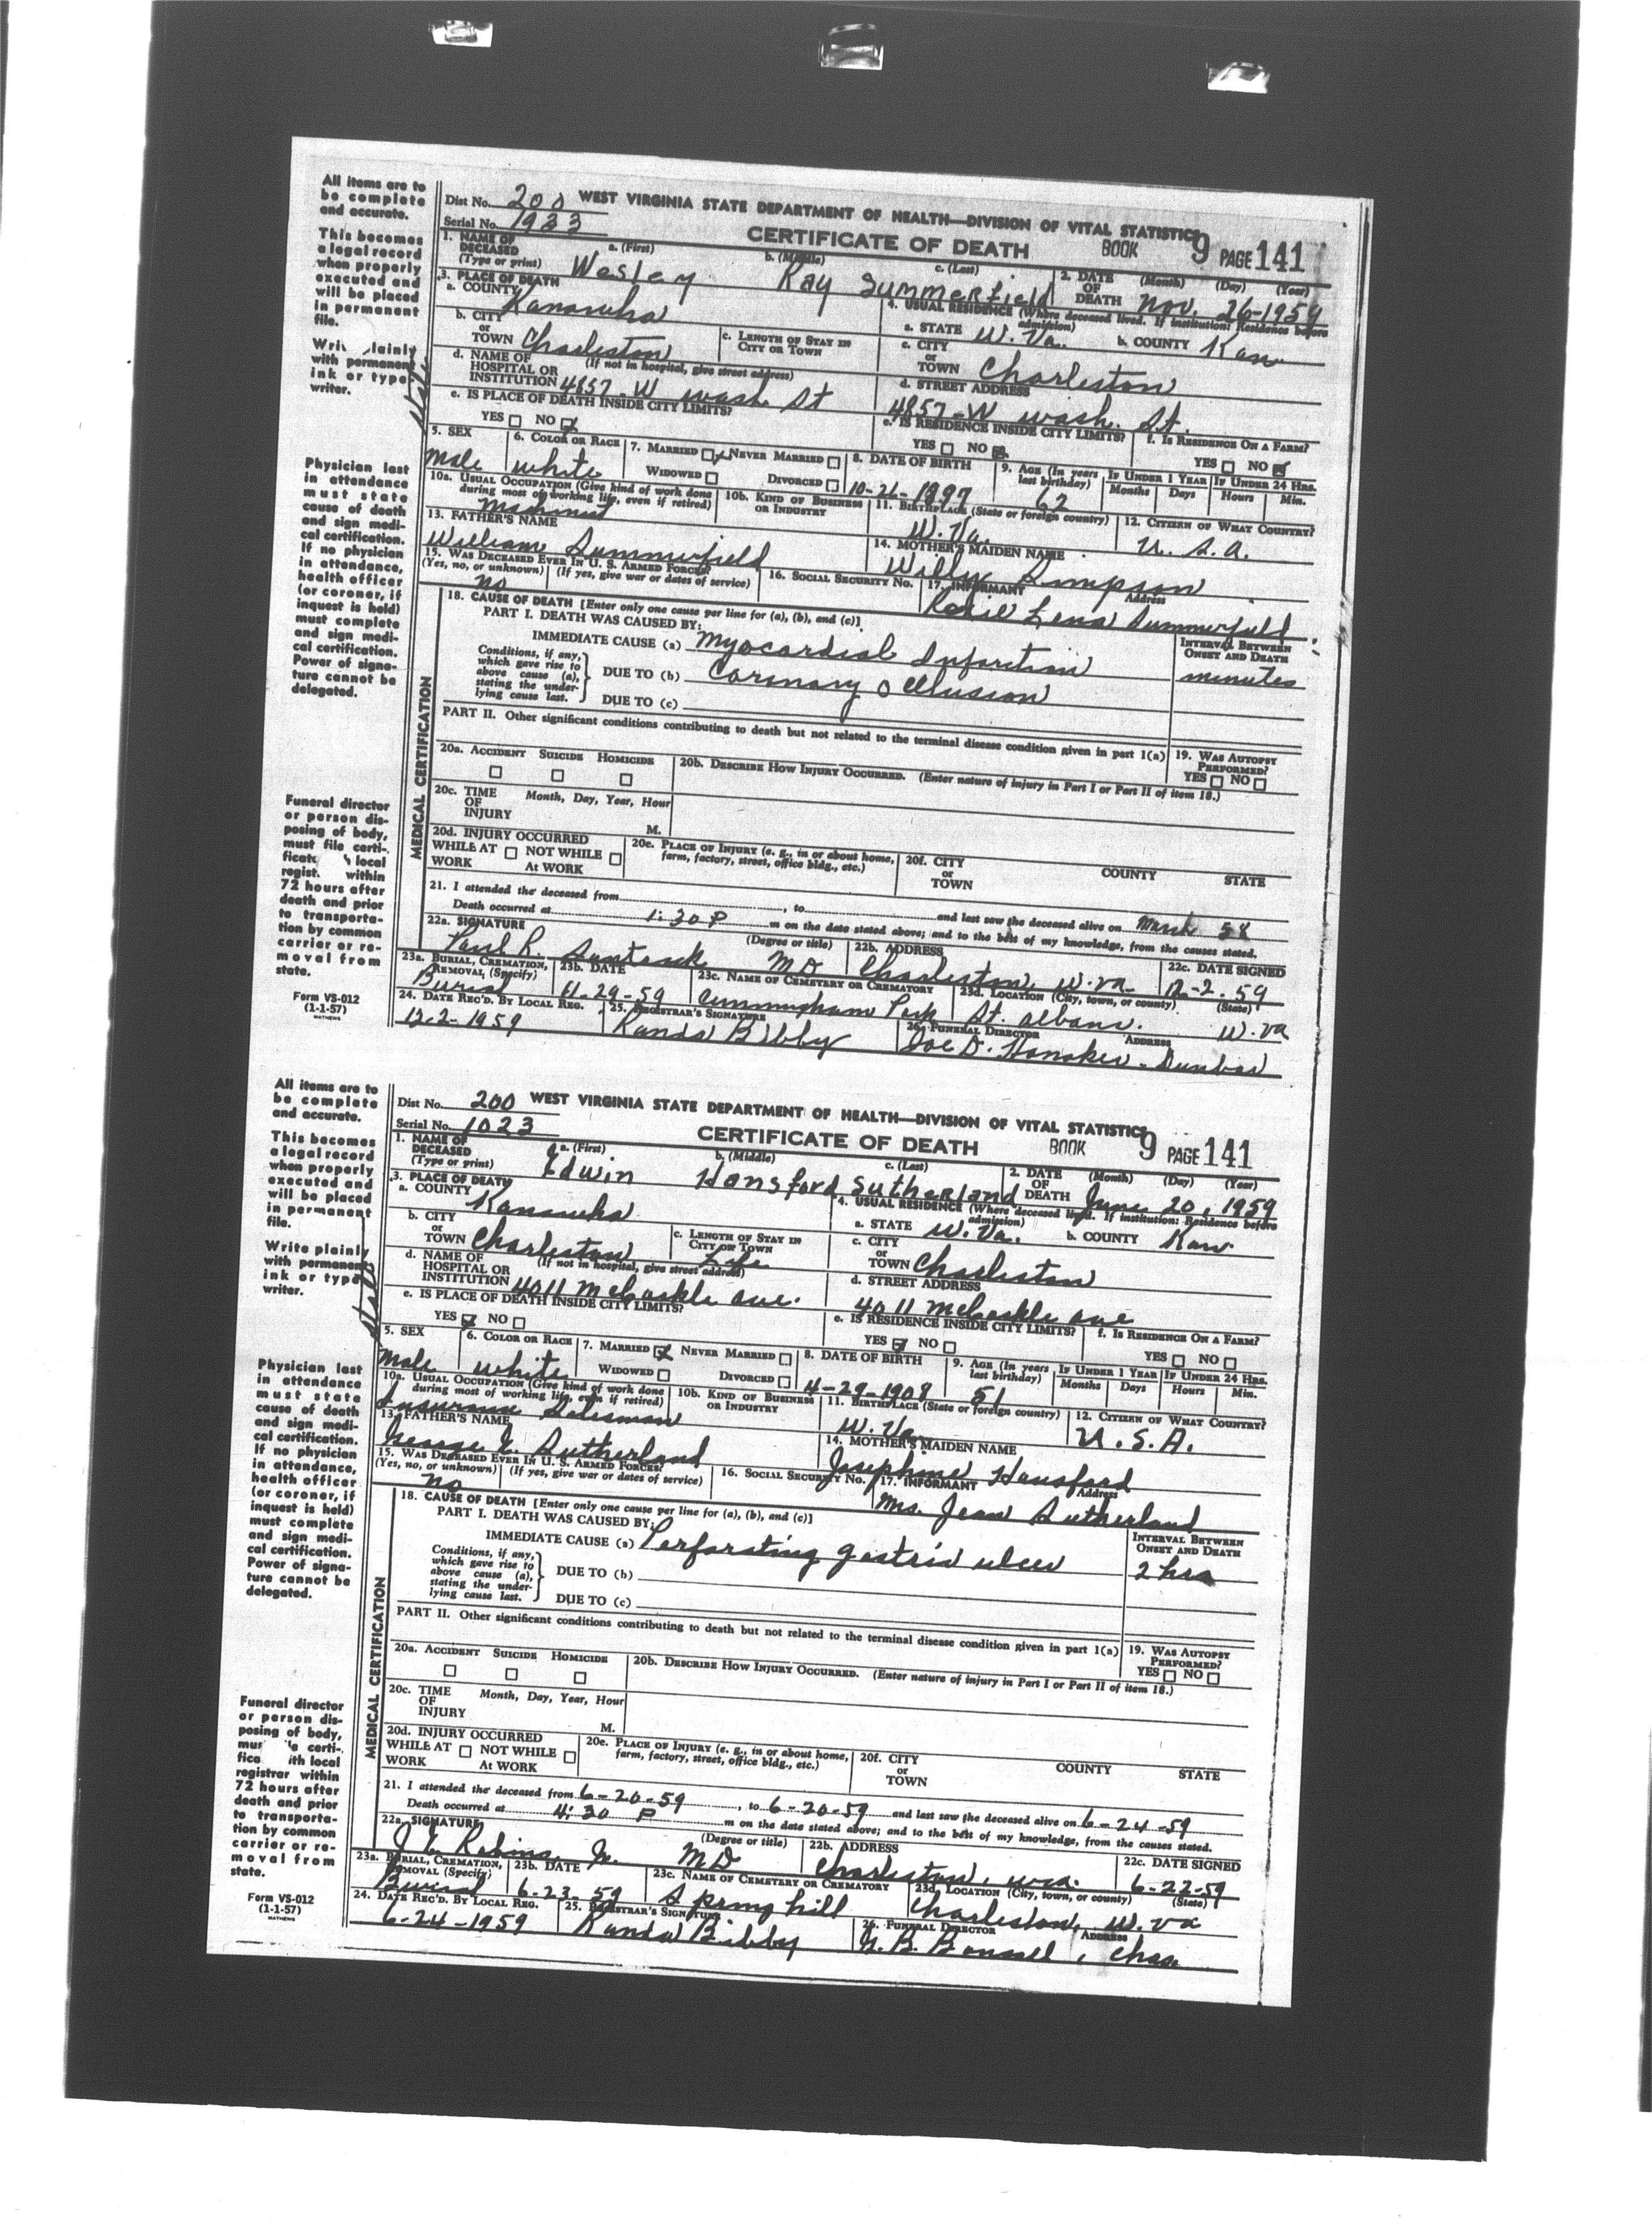 All items are to be complete and accurate.
This becomes a legal record when properly executed and will be placed in permanent file.
with permanent ink or typewriter.
Physician last in attendance must state cause of death and sign medical certification. If no physician in attendance, health officer (or coroner, if inquest is held) must complete and sign medical certification. Power of signature cannot be delegated.
Funeral director or person disposing of body, must file certi- local regist. within 72 hours after death and prior to transportation by common carrier or removal from state.
Form VS-012
(1-1-57)
MATHEWS
Dist No. 200 WEST VIRGINIA STATE DEPARTMENT OF HEALTH—DIVISION OF VITAL STATISTICS
Serial No. 1933 CERTIFICATE OF DEATH BOOK 9 PAGE 141
1. NAME OF DECEASED (Type or print) a. (First) b. (Middle) c. (Last) 2. DATE OF DEATH (Month) (Day) (Year)
Wesley Ray Summerfield Nov. 26-1959
3. PLACE OF DEATH 4. USUAL RESIDENCE (Where deceased lived. If institution: Residence before admission)
a. COUNTY Kanawha a. STATE W. Va. b. COUNTY Kan
b. CITY or TOWN Charleston c. LENGTH OF STAY IN CITY OR TOWN c. CITY or TOWN Charleston
d. NAME OF HOSPITAL OR INSTITUTION (If not in hospital, give street address) 4857-W wash St d. STREET ADDRESS 4857-W wash. St.
e. IS PLACE OF DEATH INSIDE CITY LIMITS? YES NO e. IS RESIDENCE INSIDE CITY LIMITS? YES NO f. IS RESIDENCE ON A FARM? YES NO
5. SEX male 6. COLOR OR RACE white 7. MARRIED NEVER MARRIED WIDOWED DIVORCED 8. DATE OF BIRTH 10-26-1897 9. AGE (In years last birthday) 62 IF UNDER 1 YEAR Months Days IF UNDER 24 HRS. Hours Min.
10a. USUAL OCCUPATION (Give kind of work done during most of working life, even if retired) Machinist 10b. KIND OF BUSINESS OR INDUSTRY 11. BIRTHPLACE (State or foreign country) W. Va. 12. CITIZEN OF WHAT COUNTRY? U. S. A.
13. FATHER'S NAME William Summerfield 14. MOTHER'S MAIDEN NAME
15. WAS DECEASED EVER IN U. S. ARMED FORCES? (Yes, no, or unknown) (If yes, give war or dates of service) no 16. SOCIAL SECURITY NO. 17. INFORMANT Address Lena Summerfield
18. CAUSE OF DEATH [Enter only one cause per line for (a), (b), and (c)]
PART I. DEATH WAS CAUSED BY: INTERVAL BETWEEN ONSET AND DEATH
IMMEDIATE CAUSE (a) Myocardial Infarction minutes
Conditions, if any, which gave rise to above cause (a), stating the underlying cause last.
DUE TO (b) Coronary Occlusion
DUE TO (c)
PART II. Other significant conditions contributing to death but not related to the terminal disease condition given in part 1(a) 19. WAS AUTOPSY PERFORMED? YES NO
20a. ACCIDENT SUICIDE HOMICIDE 20b. DESCRIBE HOW INJURY OCCURRED. (Enter nature of injury in Part I or Part II of item 18.)
20c. TIME OF INJURY Month, Day, Year, Hour M.
20d. INJURY OCCURRED WHILE AT WORK NOT WHILE AT WORK 20e. PLACE OF INJURY (e. g., in or about home, farm, factory, street, office bldg., etc.) 20f. CITY or TOWN COUNTY STATE
MEDICAL CERTIFICATION
21. I attended the deceased from , to and last saw the deceased alive on March 58
Death occurred at 1:30 P m on the date stated above; and to the best of my knowledge, from the causes stated.
22a. SIGNATURE Paul R. (Degree or title) MD 22b. ADDRESS Charleston, W. Va. 22c. DATE SIGNED 12-2-59
23a. BURIAL, CREMATION, REMOVAL (Specify) Burial 23b. DATE 11-29-59 23c. NAME OF CEMETERY OR CREMATORY Cunningham Park 23d. LOCATION (City, town, or county) (State) St. Albans. W. Va
24. DATE REC'D. BY LOCAL REG. 12-2-1959 25. REGISTRAR'S SIGNATURE Bibby 26. FUNERAL DIRECTOR ADDRESS Joe D. Honaker - Dunbar
All items are to be complete and accurate.
This becomes a legal record when properly executed and will be placed in permanent file.
Write plainly with permanent ink or typewriter.
Physician last in attendance must state cause of death and sign medical certification. If no physician in attendance, health officer (or coroner, if inquest is held) must complete and sign medical certification. Power of signature cannot be delegated.
Funeral director or person disposing of body, certi- ith local registrar within 72 hours after death and prior to transportation by common carrier or removal from state.
Form VS-012
(1-1-57)
MATHEWS
Dist No. 200 WEST VIRGINIA STATE DEPARTMENT OF HEALTH—DIVISION OF VITAL STATISTICS
Serial No. 1023 CERTIFICATE OF DEATH BOOK 9 PAGE 141
1. NAME OF DECEASED (Type or print) a. (First) b. (Middle) c. (Last) 2. DATE OF DEATH (Month) (Day) (Year)
Edwin Hansford Sutherland June 20, 1959
3. PLACE OF DEATH 4. USUAL RESIDENCE (Where deceased lived. If institution: Residence before admission)
a. COUNTY Kanawha a. STATE W. Va. b. COUNTY Kaw.
b. CITY or TOWN Charleston c. LENGTH OF STAY IN CITY OR TOWN Life c. CITY or TOWN Charleston
d. NAME OF HOSPITAL OR INSTITUTION (If not in hospital, give street address) 4011 McCorkle ave. d. STREET ADDRESS 4011 McCorkle ave
e. IS PLACE OF DEATH INSIDE CITY LIMITS? YES NO e. IS RESIDENCE INSIDE CITY LIMITS? YES NO f. IS RESIDENCE ON A FARM? YES NO
5. SEX male 6. COLOR OR RACE white 7. MARRIED NEVER MARRIED WIDOWED DIVORCED 8. DATE OF BIRTH 4-29-1908 9. AGE (In years last birthday) 51 IF UNDER 1 YEAR Months Days IF UNDER 24 HRS. Hours Min.
10a. USUAL OCCUPATION (Give kind of work done during most of working life, even if retired) Insurance Salesman 10b. KIND OF BUSINESS OR INDUSTRY 11. BIRTHPLACE (State or foreign country) W. Va 12. CITIZEN OF WHAT COUNTRY? U. S. A.
13. FATHER'S NAME George E. Sutherland 14. MOTHER'S MAIDEN NAME Josephine Hansford
15. WAS DECEASED EVER IN U. S. ARMED FORCES? (Yes, no, or unknown) (If yes, give war or dates of service) no 16. SOCIAL SECURITY NO. 17. INFORMANT Address Mrs. Jean Sutherland
18. CAUSE OF DEATH [Enter only one cause per line for (a), (b), and (c)]
PART I. DEATH WAS CAUSED BY: INTERVAL BETWEEN ONSET AND DEATH
IMMEDIATE CAUSE (a) Perforating gastric ulcer 2 hrs
Conditions, if any, which gave rise to above cause (a), stating the underlying cause last.
DUE TO (b)
DUE TO (c)
PART II. Other significant conditions contributing to death but not related to the terminal disease condition given in part 1(a) 19. WAS AUTOPSY PERFORMED? YES NO
20a. ACCIDENT SUICIDE HOMICIDE 20b. DESCRIBE HOW INJURY OCCURRED. (Enter nature of injury in Part I or Part II of item 18.)
20c. TIME OF INJURY Month, Day, Year, Hour M.
20d. INJURY OCCURRED WHILE AT WORK NOT WHILE AT WORK 20e. PLACE OF INJURY (e. g., in or about home, farm, factory, street, office bldg., etc.) 20f. CITY or TOWN COUNTY STATE
MEDICAL CERTIFICATION
21. I attended the deceased from 6-20-59, to 6-20-59 and last saw the deceased alive on 6-24-59
Death occurred at 4:30 P m on the date stated above; and to the best of my knowledge, from the causes stated.
22a. SIGNATURE Robins Jr. (Degree or title) MD 22b. ADDRESS Charleston, 22c. DATE SIGNED 6-22-59
23a. BURIAL, CREMATION, REMOVAL (Specify) Burial 23b. DATE 6-23-59 23c. NAME OF CEMETERY OR CREMATORY Spring hill 23d. LOCATION (City, town, or county) (State) Charleston, W. Va
24. DATE REC'D. BY LOCAL REG. 6-24-1959 25. REGISTRAR'S SIGNATURE Bibby 26. FUNERAL DIRECTOR ADDRESS Chas